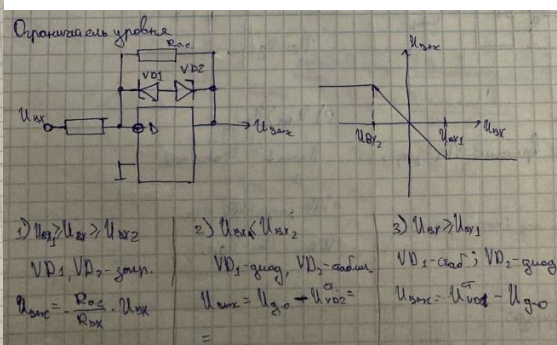 Ограничитель уровня
Rо.с.
VD1 VD2
Uвх
Uвых
Uвых
Uвх2
Uвх1
Uвх
1) Uвх1 ≥ Uвх ≥ Uвх2
VD1, VD2 - запр.
Uвых = - Rо.с. / Rвх · Uвх
2) Uвх < Uвх2
VD1 - диод, VD2 - стабил.
Uвых = Uд-о - UстVD2 =
=
3) Uвх ≥ Uвх1
VD1 - стаб; VD2 - диод
Uвых = UстVD1 - Uд-о